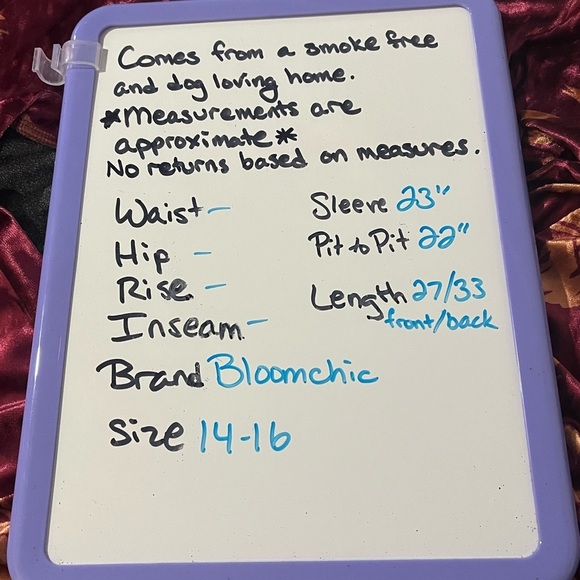 Comes from a smoke free
and dog loving home.
*Measurements are
approximate*
No returns based on measures.
Waist -
Hip -
Rise -
Inseam -
Sleeve 23"
Pit to Pit 22"
Length 27/33
front/back
Brand Bloomchic
Size 14-16